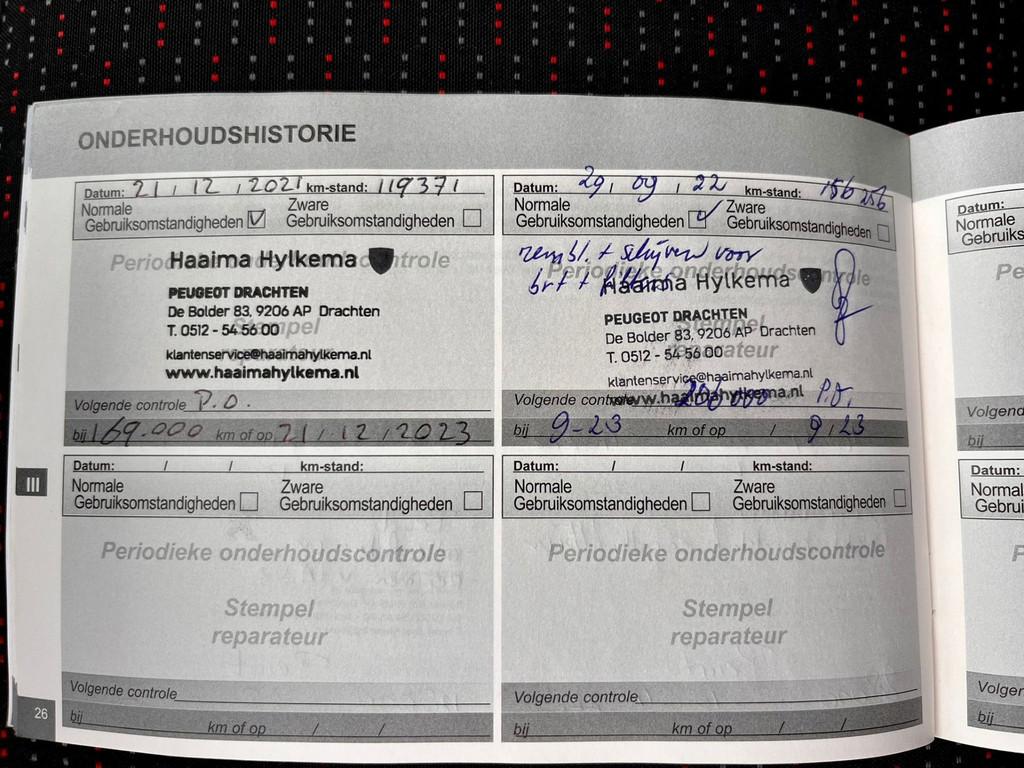 ONDERHOUDSHISTORIE
Datum: 21 / 12 / 2021 km-stand: 119371
Normale Zware
Gebruiksomstandigheden Gebruiksomstandigheden
Haaima Hylkema
PEUGEOT DRACHTEN
De Bolder 83, 9206 AP Drachten
T. 0512 - 54 56 00
Stempel
klantenservice@haaimahylkema.nl
www.haaimahylkema.nl
Volgende controle P.O.
bij 169.000 km of op 21 / 12 / 2023
Datum: 29 / 09 / 22 km-stand: 156 256
Normale Zware
Gebruiksomstandigheden Gebruiksomstandigheden
rembl. + schijven voor
Periodieke onderhoudscontrole
Haaima Hylkema
PEUGEOT DRACHTEN
Stempel
De Bolder 83, 9206 AP Drachten
T. 0512 - 54 56 00
reparateur
klantenservice@haaimahylkema.nl
www.haaimahylkema.nl
Volgende controle 206 000 P.O.
bij 9-23 km of op / 9 / 23
Datum: / / km-stand:
Normale Zware
Gebruiksomstandigheden Gebruiksomstandigheden
Periodieke onderhoudscontrole
Stempel
reparateur
Volgende controle
bij km of op / /
Datum: / / km-stand:
Normale Zware
Gebruiksomstandigheden Gebruiksomstandigheden
Periodieke onderhoudscontrole
Stempel
reparateur
Volgende controle
bij km of op / /
III
26
Datum:
Normale
bij
Datum:
bij